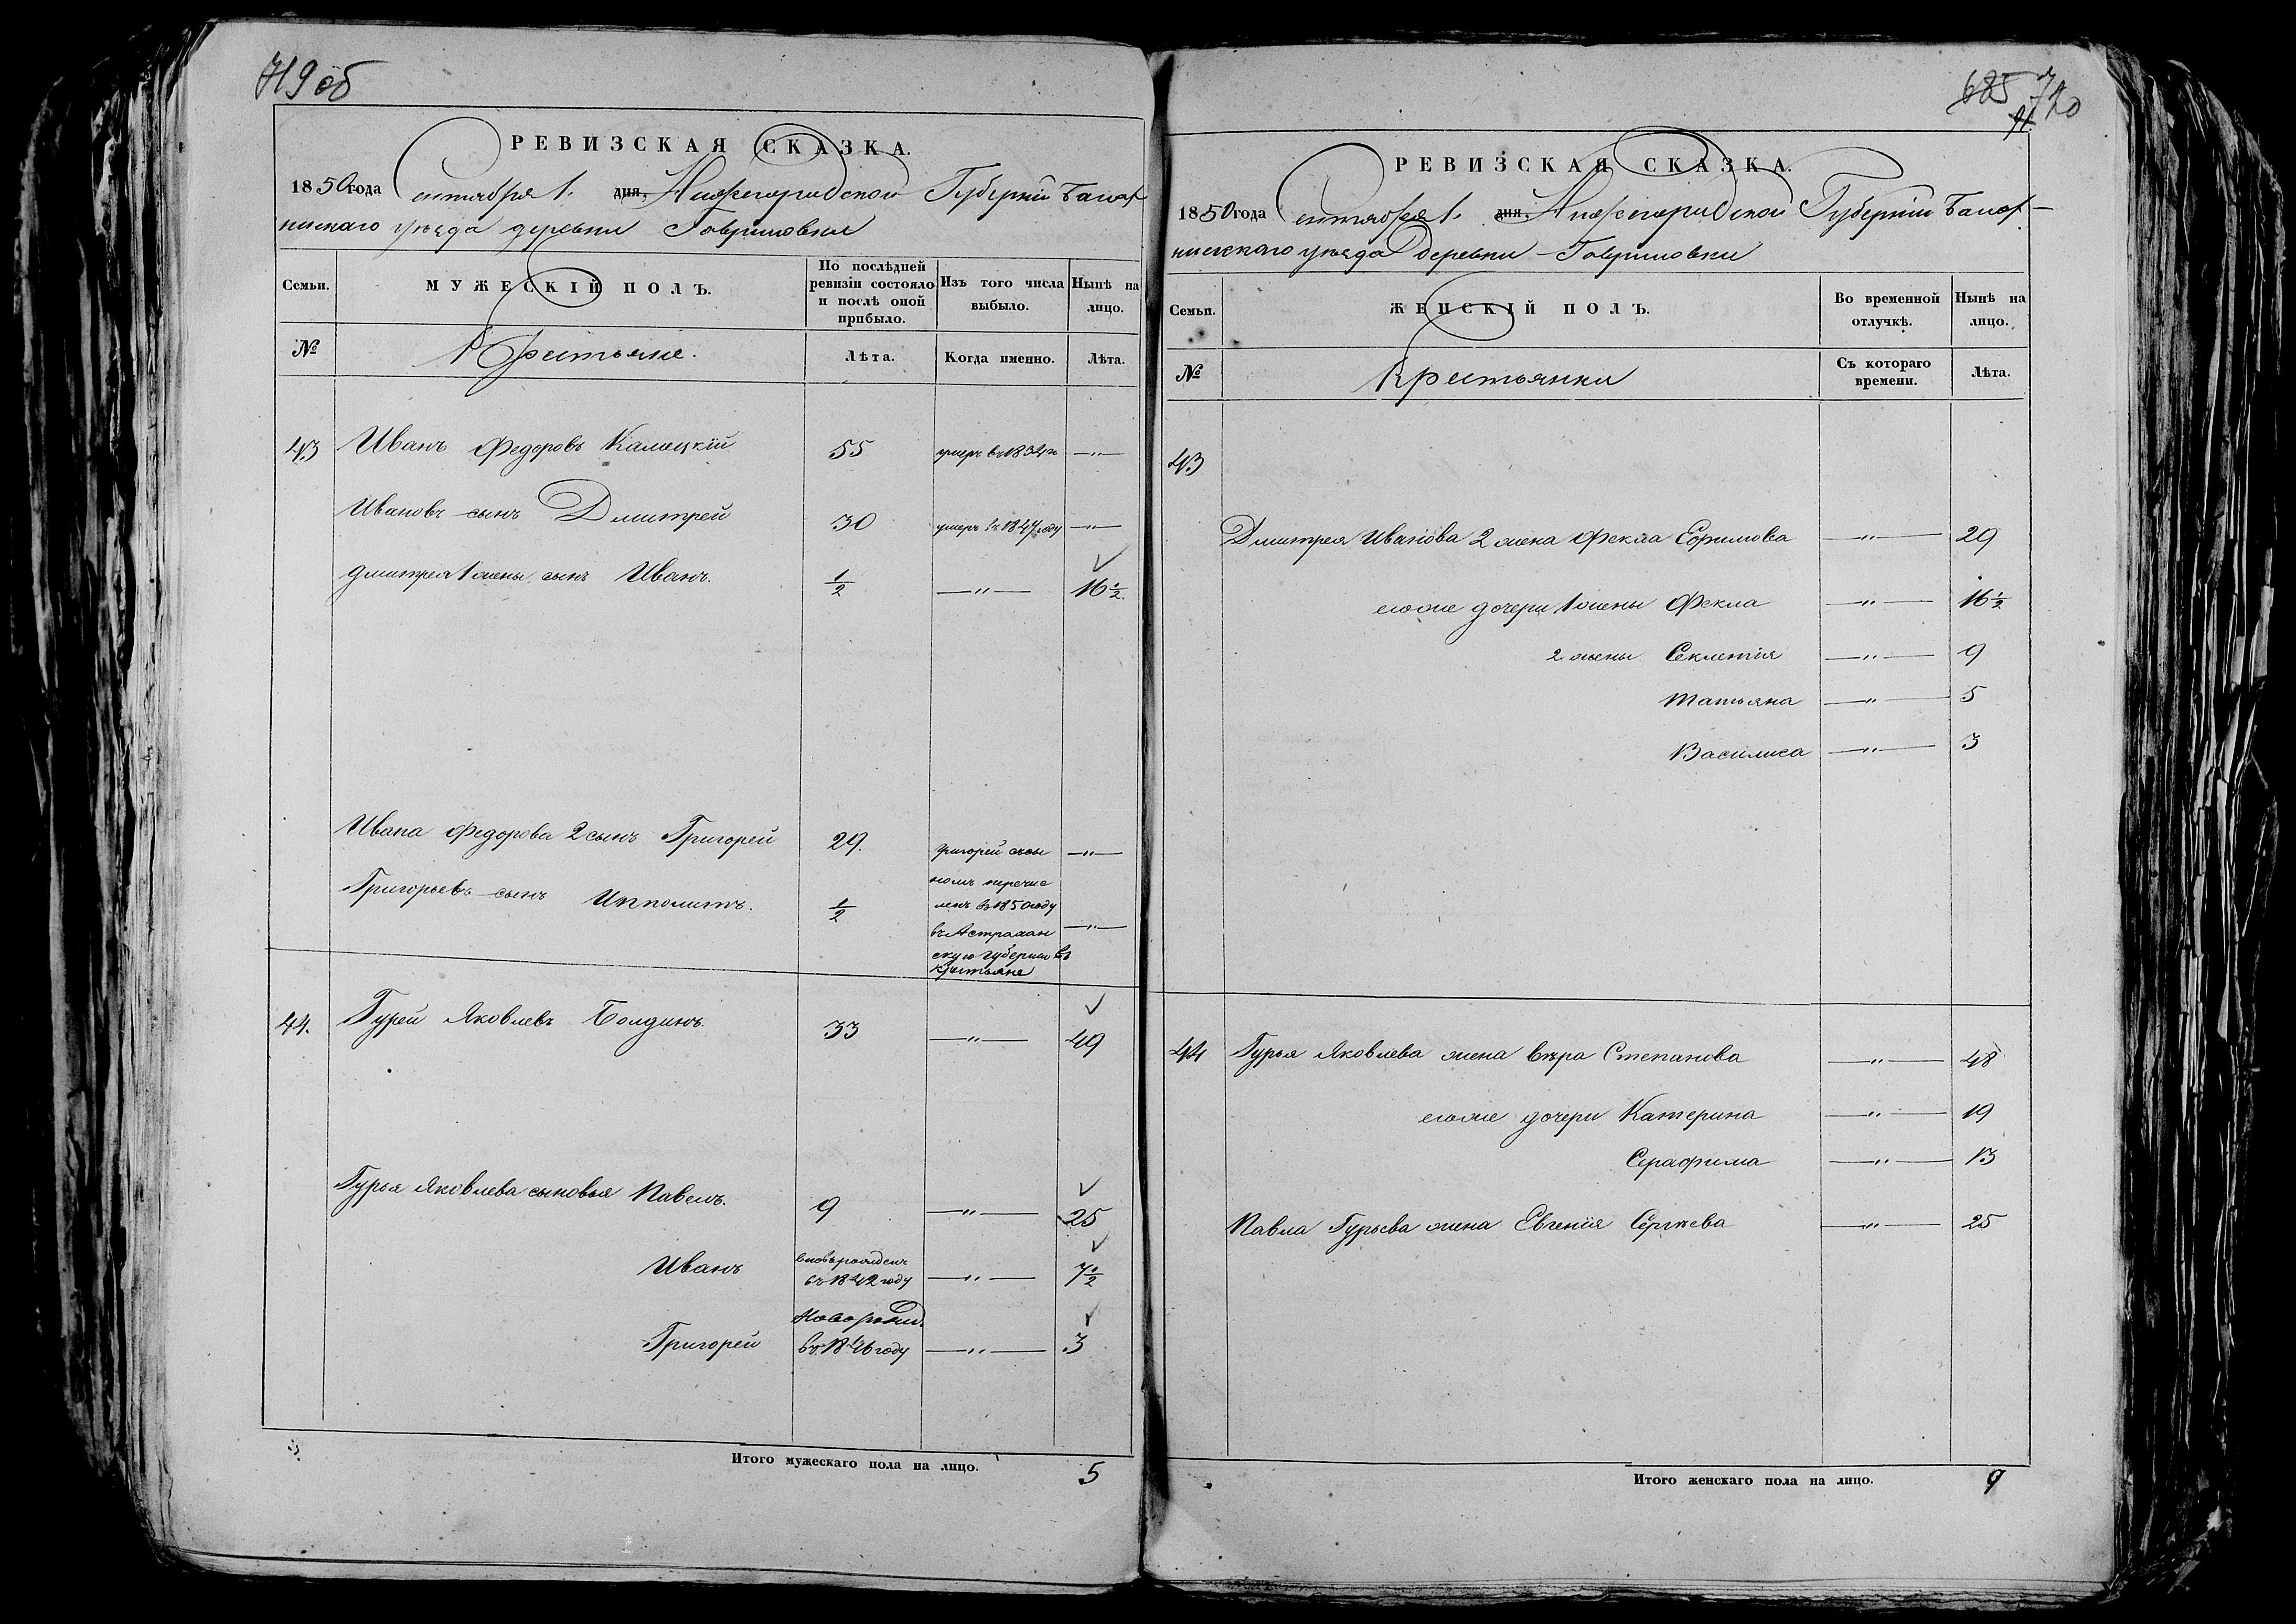 719 об
РЕВИЗСКАЯ СКАЗКА.
1850 года Сентября 1. дня, Нижегородской Губерніи Балах
нинскаго уѣзда деревни Гавриловки
Семьи.
МУЖЕСКІЙ ПОЛЪ.
По послѣдней ревизіи состояло и послѣ оной прибыло.
Изъ того числа выбыло.
Нынѣ на лицо.
№
Крестьяне.
Лѣта.
Когда именно.
Лѣта.
43 Иванъ Федоровъ 55 умеръ въ 1834 —"—
Ивановъ сынъ Дмитрей 30 умеръ въ 1847 году —"—
Дмитрея 1 жены сынъ Иванъ. 1/2 —"— 16 1/2.
Ивана Федорова 2 сынъ Григорей 29. Григорей съ сы —"—
номъ перечис
Григорьевъ сынъ Ипполитъ. 1/2 ленъ въ 1850 году
въ Астрахан —"—
скую губернію въ
крестьяне
44. Гурей Яковлевъ Болдинъ. 33 —"— 49
Гурья Яковлева сыновья Павелъ. 9 —"— 25
Иванъ вновь рожденъ
въ 1842 году —"— 7 1/2
Новорожд.
Григорей въ 1846 году —"— 3
Итого мужескаго пола на лицо. 5
685
720
РЕВИЗСКАЯ СКАЗКА.
1850 года Сентября 1. дня, Нижегородской Губерніи Балах-
нинскаго уѣзда Деревни Гавриловки
Семьи.
ЖЕНСКІЙ ПОЛЪ.
Во временной отлучкѣ.
Нынѣ на лицо.
№
Крестьянки
Съ котораго времени.
Лѣта.
43
Дмитрея Иванова 2 жена Фекла Ефимова —"— 29
его же дочери 1 жены Фекла —"— 16 1/2
2 жены Секлетія —"— 9
Татьяна —"— 5
Василиса —"— 3
44 Гурья Яковлева жена Вѣра Степанова —"— 48
его же дочери Катерина —"— 19
Серафима —"— 13
Павла Гурьева жена Евгенія Сергѣева —"— 25
Итого женскаго пола на лицо. 9